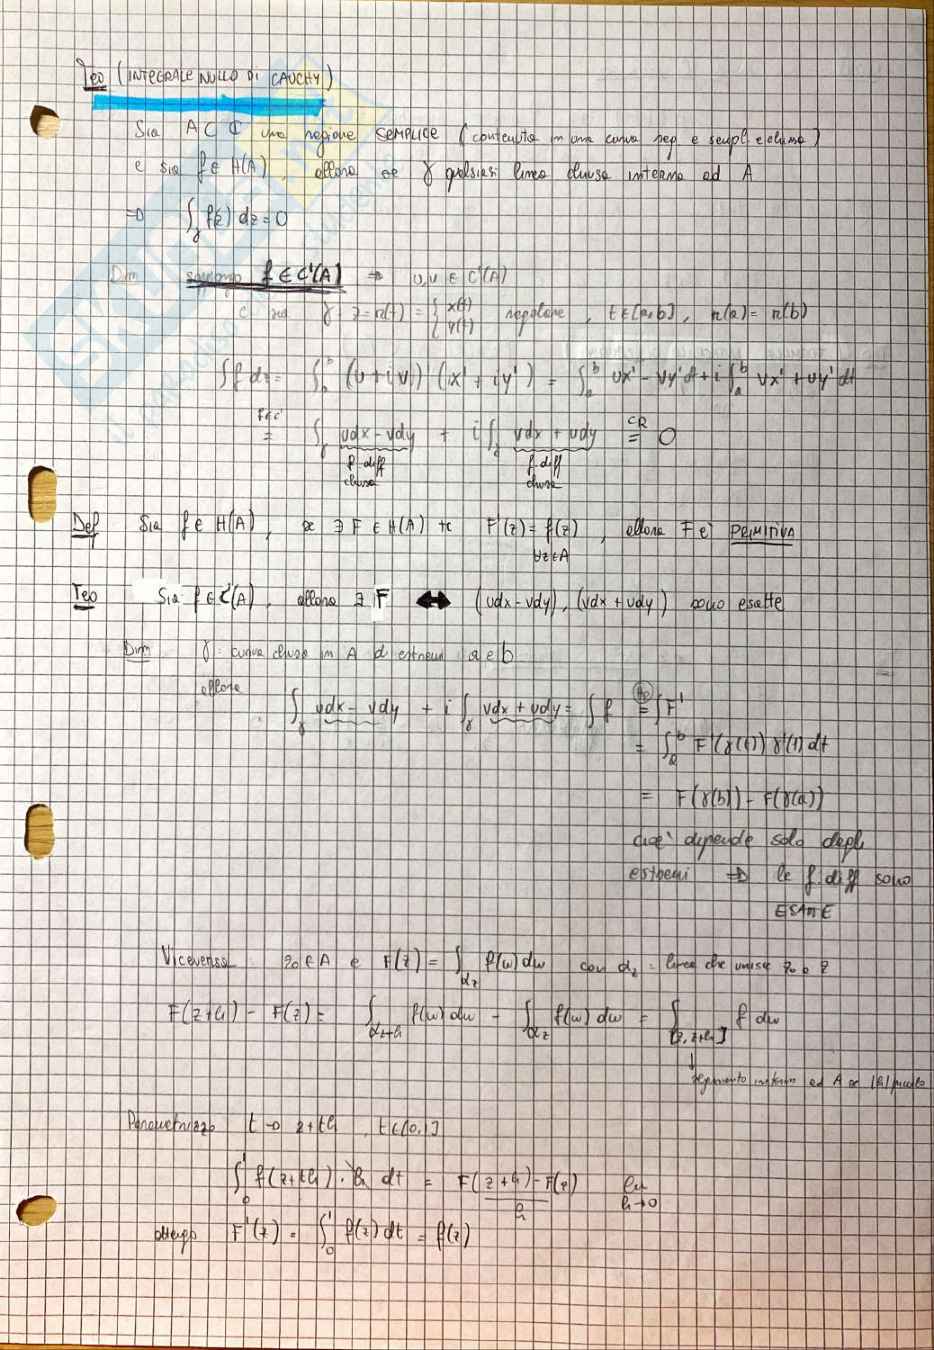 Teo (INTEGRALE NULLO DI CAUCHY)
Sia A ⊂ ℂ una regione SEMPLICE (contenuta in una curva reg e sempl e chiusa)
e sia f ∈ H(A), allora se γ qualsiasi linea chiusa interna ad A
⇒ ∫_γ f(z) dz = 0
Dim suppongo f ∈ C¹(A) ⇒ u,v ∈ C¹(A)
e sia γ: z = r(t) = { x(t) y(t) regolare, t ∈ [a,b], r(a) = r(b)
∫ f dz = ∫_a^b (u + iv) (x' + iy') = ∫_a^b ux' - vy' dt + i ∫_a^b vx' + uy' dt
f ∈ C¹ = ∫_γ udx - vdy + i ∫_γ vdx + udy CR = 0
f. diff chiusa f. diff chiusa
Def Sia f ∈ H(A), se ∃ F ∈ H(A) tc F'(z) = f(z) ∀z∈A, allora F è PRIMITIVA
Teo Sia f ∈ C¹(A), allora ∃ F ↔ (udx - vdy), (vdx + udy) sono esatte
Dim γ curva chiusa in A di estremi a e b
allora ∫_γ udx - vdy + i ∫_γ vdx + udy = ∫ f Hp = ∫ F'
= ∫_a^b F'(γ(t)) γ'(t) dt
= F(γ(b)) - F(γ(a))
cioè dipende solo dagli
estremi ⇒ le f. diff sono
ESATTE
Viceversa z₀ ∈ A e F(z) = ∫_{α_z} f(w) dw con α_z = linea che unisce z₀ a z
F(z+h) - F(z) = ∫_{α_{z+h}} f(w) dw - ∫_{α_z} f(w) dw = ∫_{[z, z+h]} f dw
↓ segmento interno ad A se |h| piccolo
Parametrizzo t → z + th, t ∈ [0,1]
∫_0^1 f(z+th) · h dt = F(z+h) - F(z) / h lim h→0
ottengo F'(z) = ∫_0^1 f(z) dt = f(z)